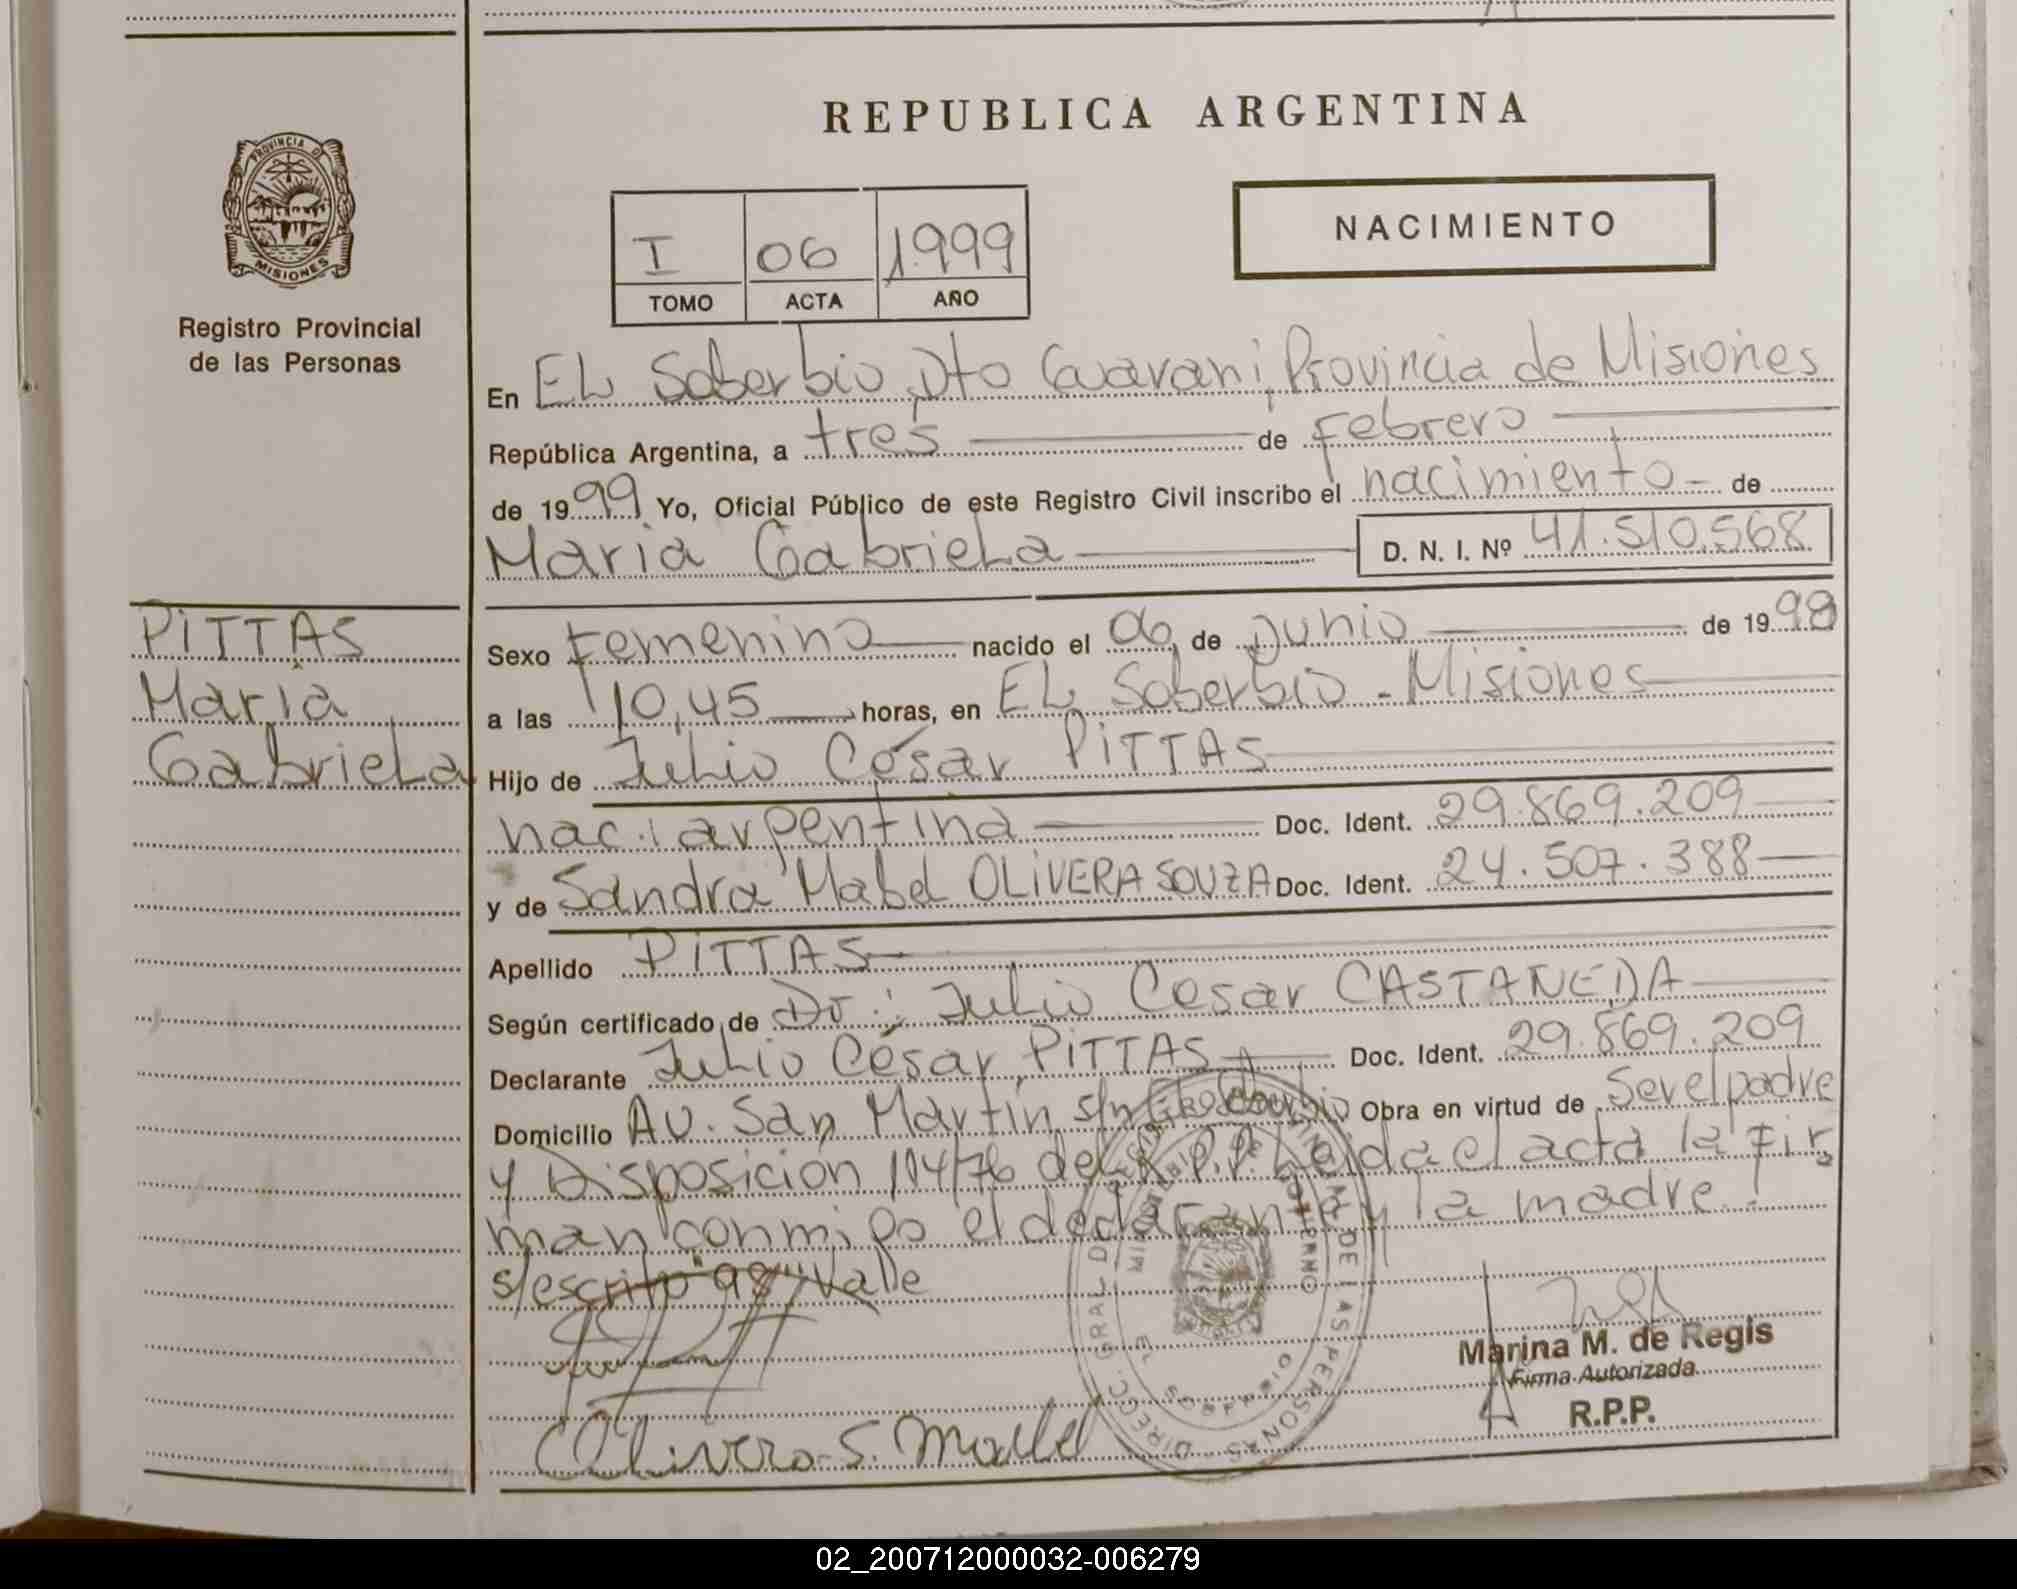 REPUBLICA ARGENTINA
PROVINCIA D
MISIONES
Registro Provincial
de las Personas
I 06 1.999
TOMO ACTA AÑO
NACIMIENTO
En EL Soberbio, Dto Guarani, Provincia de Misiones
República Argentina, a tres de Febrero
de 1999 Yo, Oficial Público de este Registro Civil inscribo el nacimiento - de
Maria Gabriela D. N. I. Nº 41.510.568
PITTAS
Maria
Gabriela
Sexo Femenino nacido el 06 de Junio de 1998
a las 10,45 horas, en EL Soberbio - Misiones
Hijo de Julio César PITTAS
nac: argentina Doc. Ident. 29.869.209
y de Sandra Mabel OLIVERA SOUZA Doc. Ident. 24.507.388
Apellido PITTAS
Según certificado de Dr: Julio Cesar CASTAÑEDA
Declarante Julio César PITTAS Doc. Ident. 29.869.209
Domicilio Av. San Martín s/n El Soberbio Obra en virtud de Ser el padre
y Disposición 114/76 del R.P.P. Leida el acta la fir
man conmigo el declarante y la madre.
s/escrito "98" Valle
Olivera S. Mabel
Marina M. de Regis
Firma Autorizada
R.P.P.
DIRECC. GRAL DE LAS PERSONAS
EL SOBERBIO
02_200712000032-006279